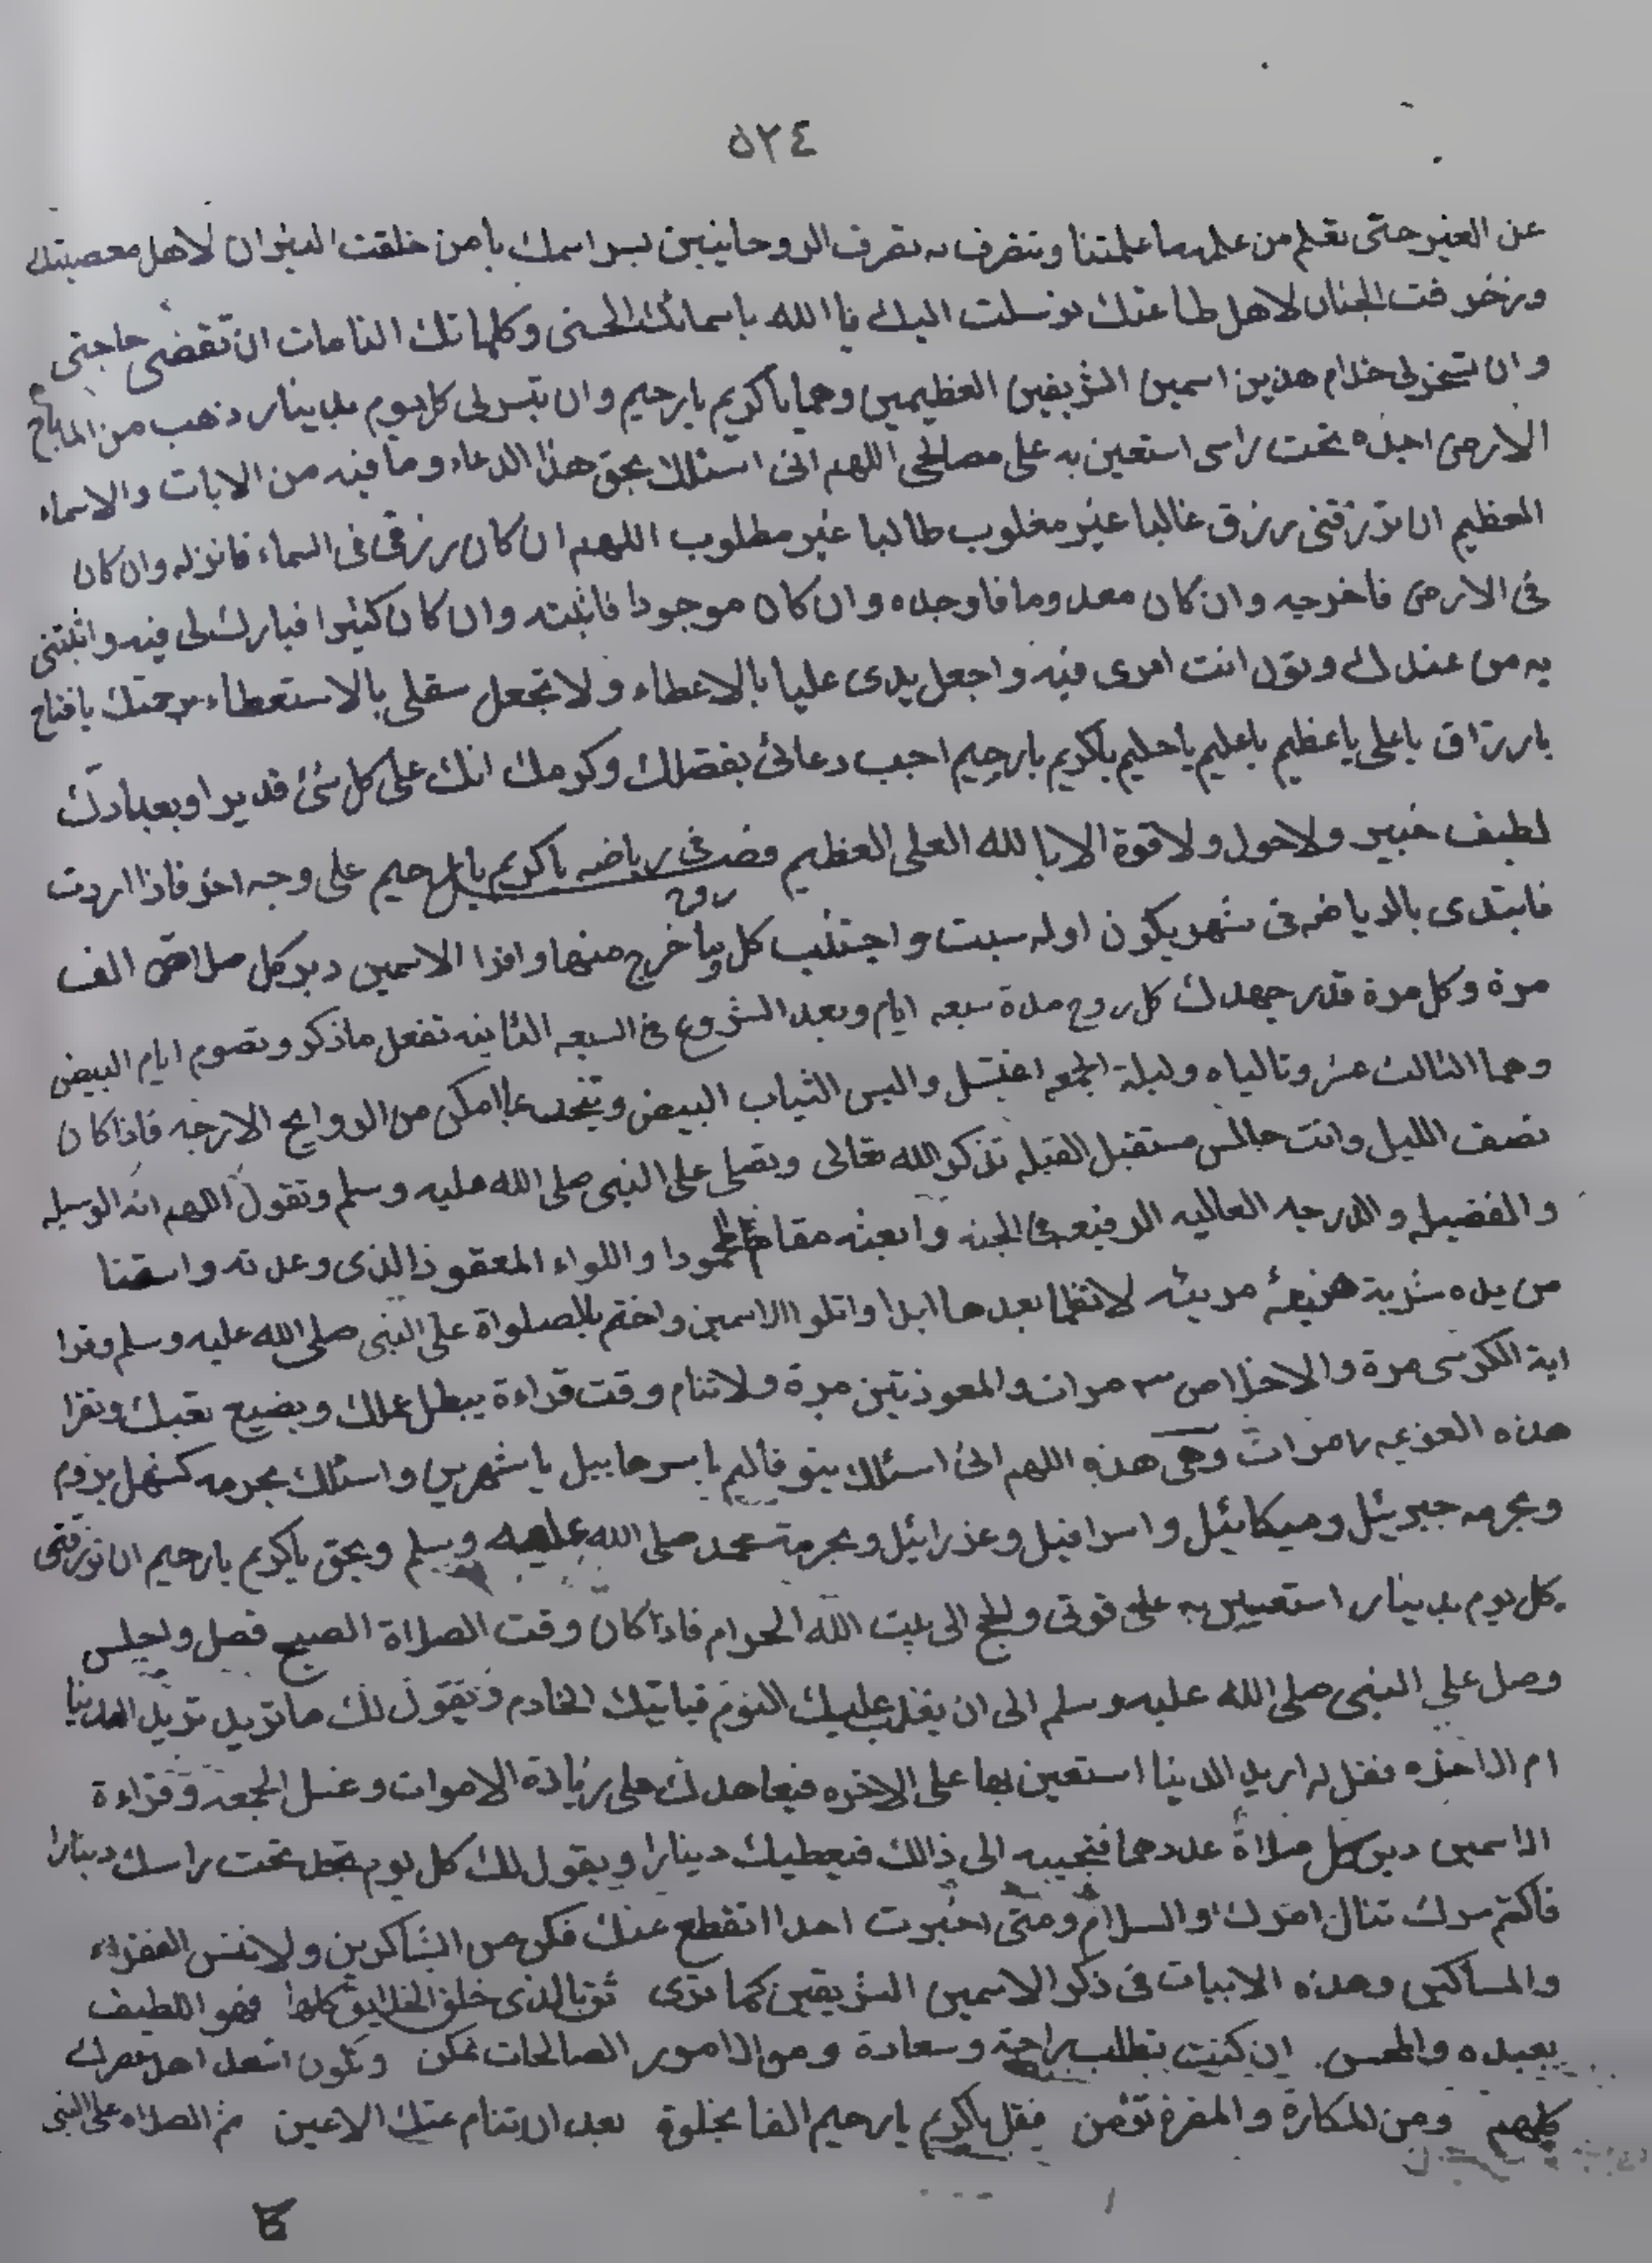 ٥٢٤
عن الغير حتى نعلم من علمه ما علمتنا ونتصرف به تصرف الروحانيين بسر اسمك يا من خلقت النيران لاهل معصيتك
وزخرفت الجنان لاهل طاعتك توسلت اليك يا الله باسمائك الحسنى وكلماتك التامات ان تقضى حاجتى
وان تسخر لى خدام هذين اسمين الشريفين العظيمين وهما يا كريم يا رحيم وان تيسر لى كل يوم بدينار ذهب من المباح
الارض اجده تحت راسى استعين به على مصالحى اللهم انى اسئلك بحق هذا الدعاء وما فيه من الايات والاسماء
العظيم ان ترزقنى رزق غالبا غير مغلوب طالبا غير مطلوب اللهم ان كان رزقى فى السماء فانزله وان كان
فى الارض فاخرجه وان كان معدوما فاوجده وان كان موجودا فاثبته وان كان كثيرا فبارك لى فيه واثبتنى
به من عندك وتول انت امرى فيه واجعل يدى عليا بالاعطاء ولا تجعل سفلى بالاستعطاء برحمتك يا فتاح
يا رزاق يا على يا عظيم يا عليم يا حليم يا كريم يا رحيم اجب دعائى بفضلك وكرمك انك على كل شئ قدير او بعبادك
لطيف خبير ولا حول ولا قوة الا بالله العلى العظيم فصد فى رياضه يا كريم يا رحيم على وجه اخر فاذا اردت
فابتدى بالرياضه فى شهر يكون اوله سبت واجتنب كل روح وما خرج منها واقرا الاسمين دبر كل صلاة الف
مرة وكل مرة قدر جهدك كل روح مدة سبعه ايام وبعد الشروع فى السبعه الثانيه تفعل ما ذكر وتصوم ايام البيض
وهما الثالث عشر وتالياه وليلة الجمعه اغتسل والبس الثياب البيض وتبخر بما امكن من الروايح الارجه فاذا كان
نصف الليل وانت جالس مستقبل القبله تذكر الله تعالى وتصلى على النبى صلى الله عليه وسلم وتقول اللهم اته الوسيله
والفضيله والدرجه العاليه الرفيعه فى الجنه وابعثه مقاما محمودا واللواء المعقود الذى وعدته واسقنا
من يده شربة هنيئة مريئه لا نظما بعدها ابدا واتلوا الاسمين واختم بالصلواة على النبى صلى الله عليه وسلم وقرا
اية الكرسى مرة والاخلاص ٣ مرات والمعوذتين مرة ولا تنام وقت قراءة يبطل عملك ويضيع تعبك وتقرا
هذه العزيمه مرات وهى هذه اللهم انى اسئلك يا سرحاييل واسئلك بحرمه
وبحرمه جبريئل وميكائيل واسرافيل وعزرائيل وبحرمة محمد صلى الله عليه وسلم وبحق يا كريم يا رحيم ان ترزقنى
كل يوم بدينار استعين به على قوتى وللحج الى بيت الله الحرام فاذا كان وقت الصلاة الصبح فصل واجلس
وصل على النبى صلى الله عليه وسلم الى ان يغلب عليك النوم فياتيك الخادم ويقول لك ما تريد تريد الدنيا
ام الاخره فقل له اريد الدينا استعين بها على الاخره فيعاهدك على زيادة الاموات وغسل الجمعة وقراءة
الاسمين دبر كل صلاة عددهما فتجيبه الى ذالك فيعطيك دينارا ويقول لك كل يوم تجد تحت راسك دينارا
فاكتم سرك تنال امرك والسلام ومتى اخبرت احدا انقطع عنك فكن من الشاكرين ولا تنس الفقراء
والمساكين وهذه الابيات فى ذكر الاسمين الشريفين كما ترى ثق بالذى خلق الخلايق كلها فهو اللطيف
بعبده والمحسن ان كنت تطلب راحة وسعادة ومن الامور الصالحات تمكن وتكون اسعد اهل عصرك
كلهم ومن المكارة والمضرة تؤمن فقل يا كريم يا رحيم الفا بخلوة بعد ان تنام عنك الاعين ثم الصلاه على النبى